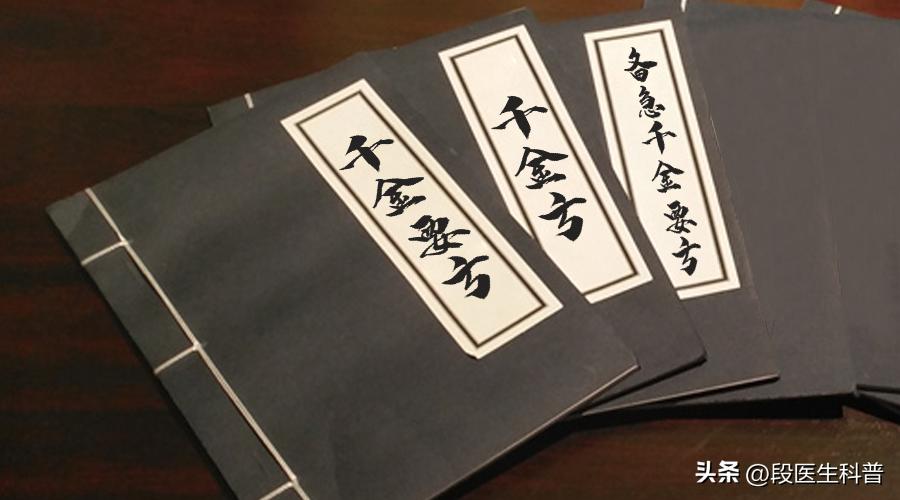 千金要方
千金方
备急千金要方
头条 @段医生科普